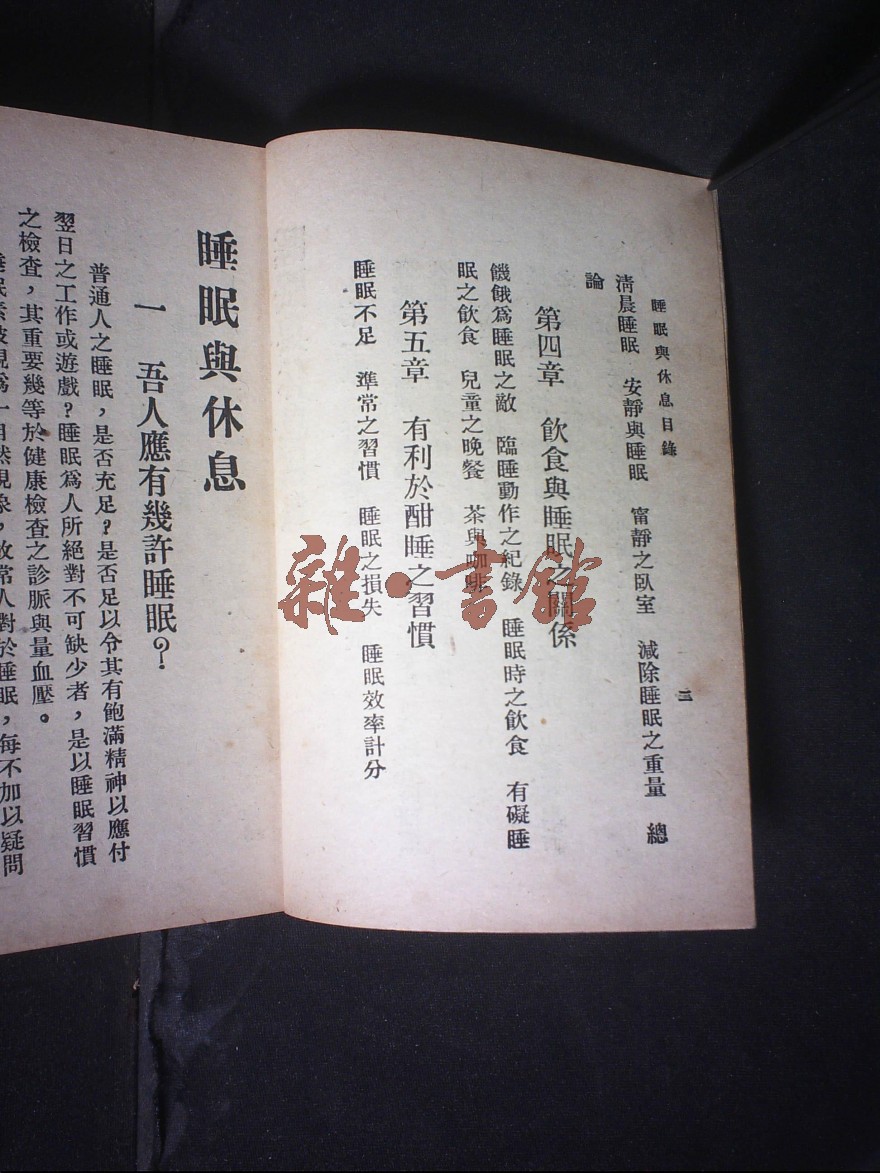 睡眠與休息目錄
二
清晨睡眠　安靜與睡眠　甯靜之臥室　減除睡眠之重量　總
論
第四章　飲食與睡眠之關係
饑餓爲睡眠之敵　臨睡動作之紀錄　睡眠時之飲食　有礙睡
眠之飲食　兒童之晚餐　茶與咖啡
第五章　有利於酣睡之習慣
睡眠不足　準常之習慣　睡眠之損失　睡眠效率計分
睡眠與休息
一　吾人應有幾許睡眠？
普通人之睡眠，是否充足？是否足以令其有飽滿精神以應付
翌日之工作或遊戲？睡眠爲人所絕對不可缺少者，是以睡眠習慣
之檢查，其重要幾等於健康檢查之診脈與量血壓。
睡眠素被視爲一自然現象，故常人對於睡眠，每不加以疑問
雜·書館